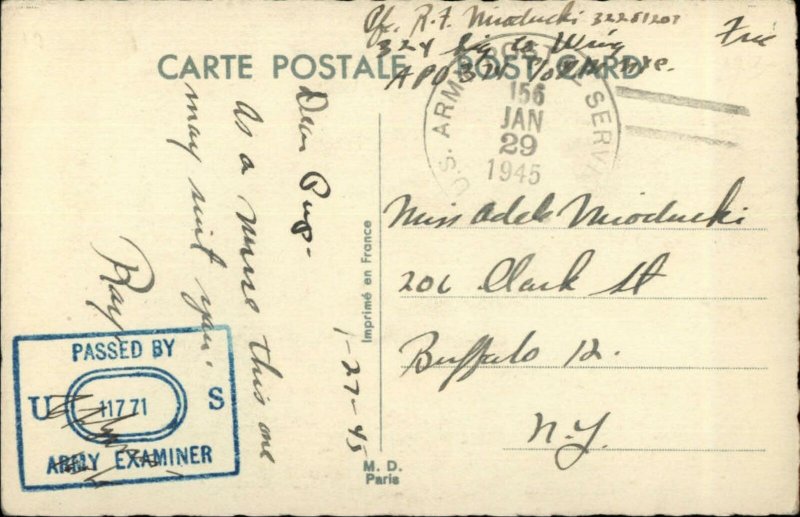 Pfc. R.F. Mioducki 32251207
324 Sig Co Wing
APO 374 c/o PM NYC.
Free
CARTE POSTALE POST CARD
U.S. ARMY POSTAL SERVICE
156
JAN
29
1945
1-27-45
Dear Pug-
As a nurse this one
may suit you.
Ray
Imprimé en France
Miss Adele Mioducki
206 Clark St
Buffalo 12.
N.Y.
PASSED BY
U 11771 S
ARMY EXAMINER
M. D.
Paris